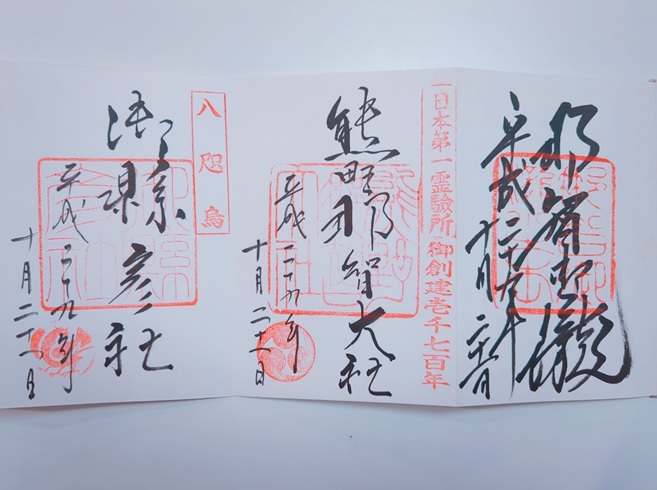 那智御瀧
平成二十九年
十月二十一日
日本第一霊験所 御創建壱千七百年
熊野那智大社
平成二十九年
十月二十一日
八咫烏
御縣彦社
平成二十九年
十月二十一日